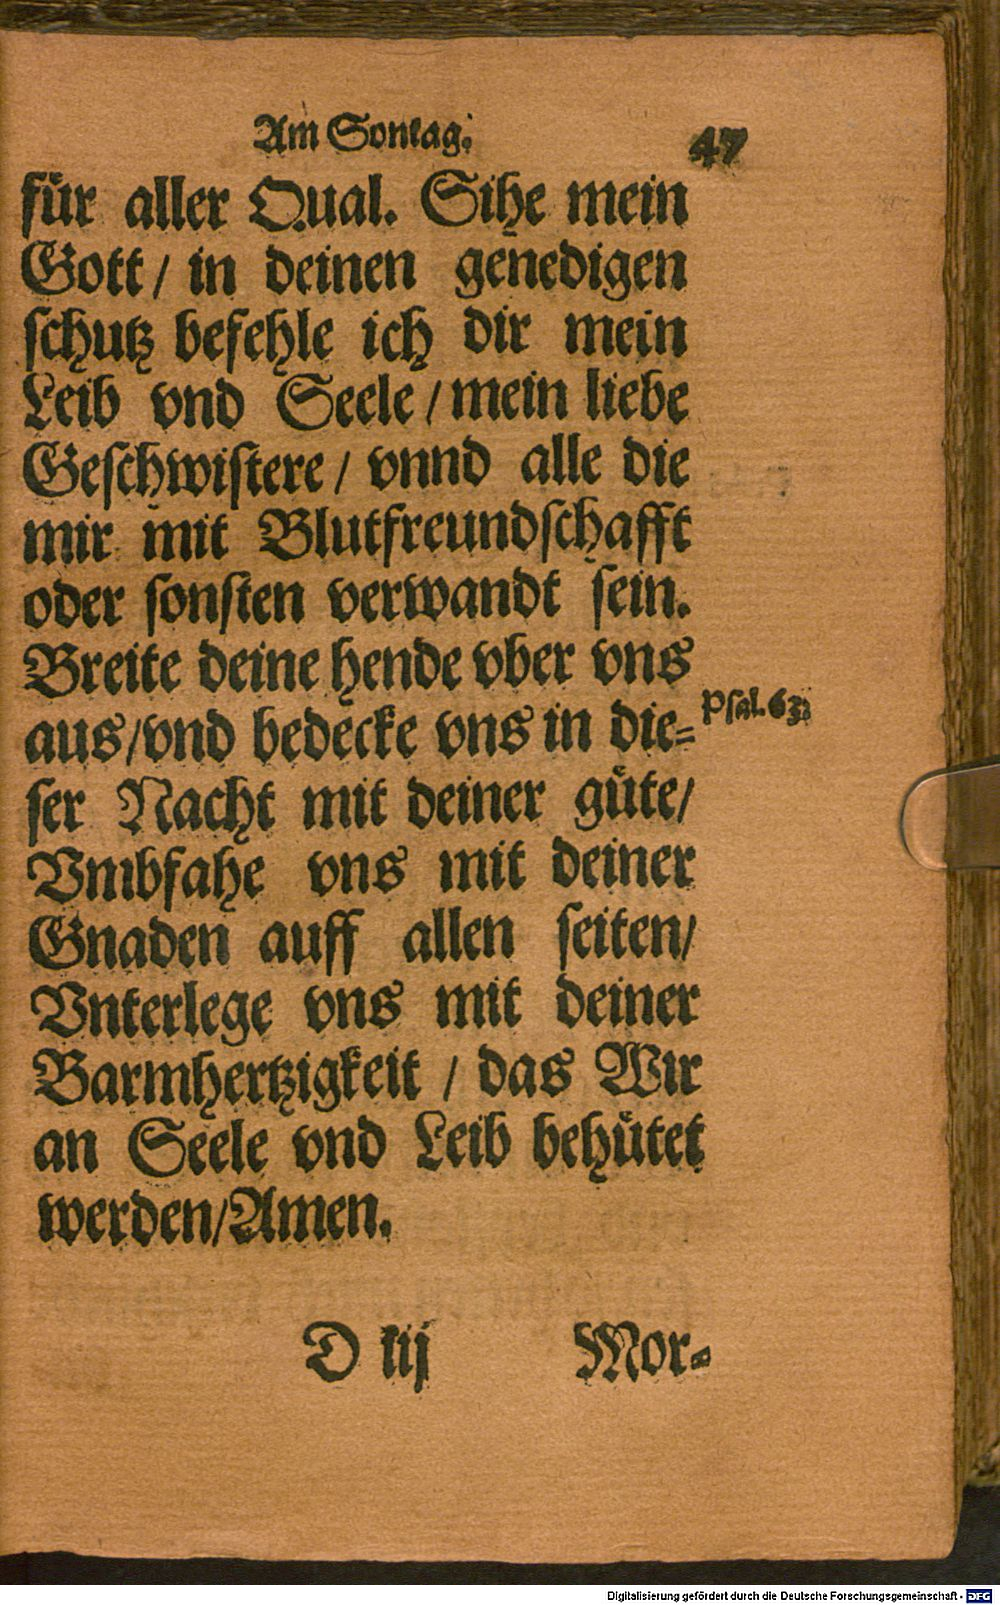 Am Sontag. 47
für aller Qual. Sihe mein
Gott/ in deinen genedigen
schutz befehle ich dir mein
Leib vnd Seele/mein liebe
Geschwistere/ vnnd alle die
mir mit Blutfreundschafft
oder sonsten verwandt sein.
Breite deine hende vber vns
aus/vnd bedecke vns in die=
Psal. 63.
ser Nacht mit deiner güte/
Vmbfahe vns mit deiner
Gnaden auff allen seiten/
Vnterlege vns mit deiner
Barmhertzigkeit / das Wir
an Seele vnd Leib behütet
werden/Amen.
Mor=
Digitalisierung gefördert durch die Deutsche Forschungsgemeinschaft - DFG